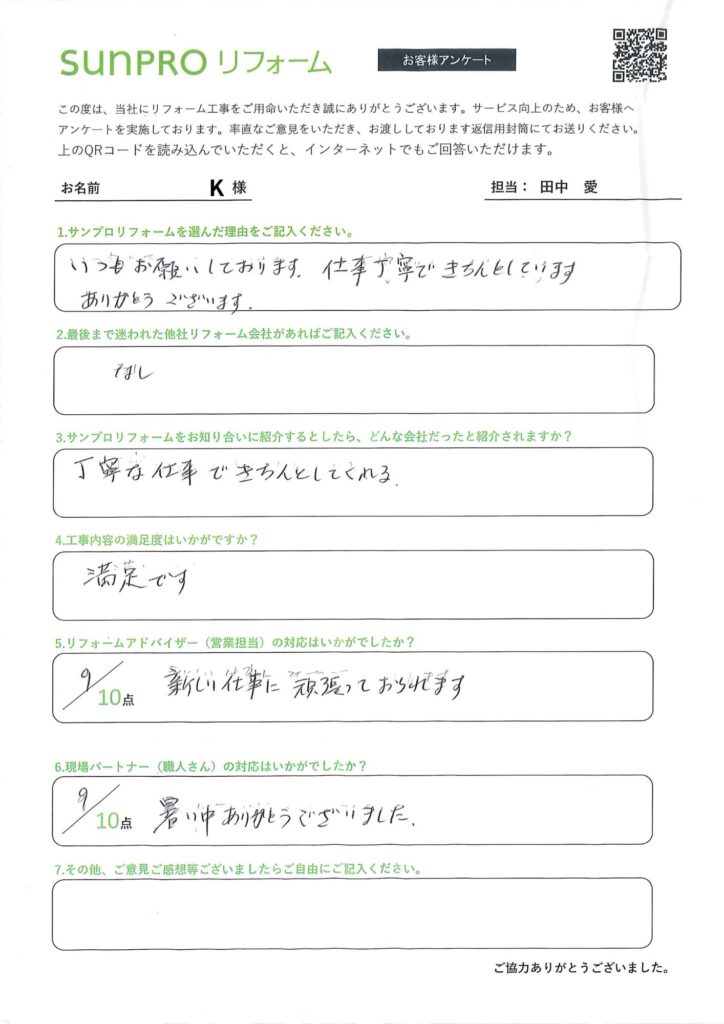 sunPRO リフォーム
お客様アンケート
この度は、当社にリフォーム工事をご用命いただき誠にありがとうございます。サービス向上のため、お客様へ
アンケートを実施しております。率直なご意見をいただき、お渡ししております返信用封筒にてお送りください。
上のQRコードを読み込んでいただくと、インターネットでもご回答いただけます。
お名前 K 様 担当： 田中 愛
1.サンプロリフォームを選んだ理由をご記入ください。
いつもお願いしております。仕事丁寧できちんとしています
ありがとうございます。
2.最後まで迷われた他社リフォーム会社があればご記入ください。
なし
3.サンプロリフォームをお知り合いに紹介するとしたら、どんな会社だったと紹介されますか？
丁寧な仕事できちんとしてくれる.
4.工事内容の満足度はいかがですか？
満足です
5.リフォームアドバイザー（営業担当）の対応はいかがでしたか？
9/10点 新しい仕事に頑張っておられます
6.現場パートナー（職人さん）の対応はいかがでしたか？
9/10点 暑い中ありがとうございました.
7.その他、ご意見ご感想等ございましたらご自由にご記入ください。
ご協力ありがとうございました。